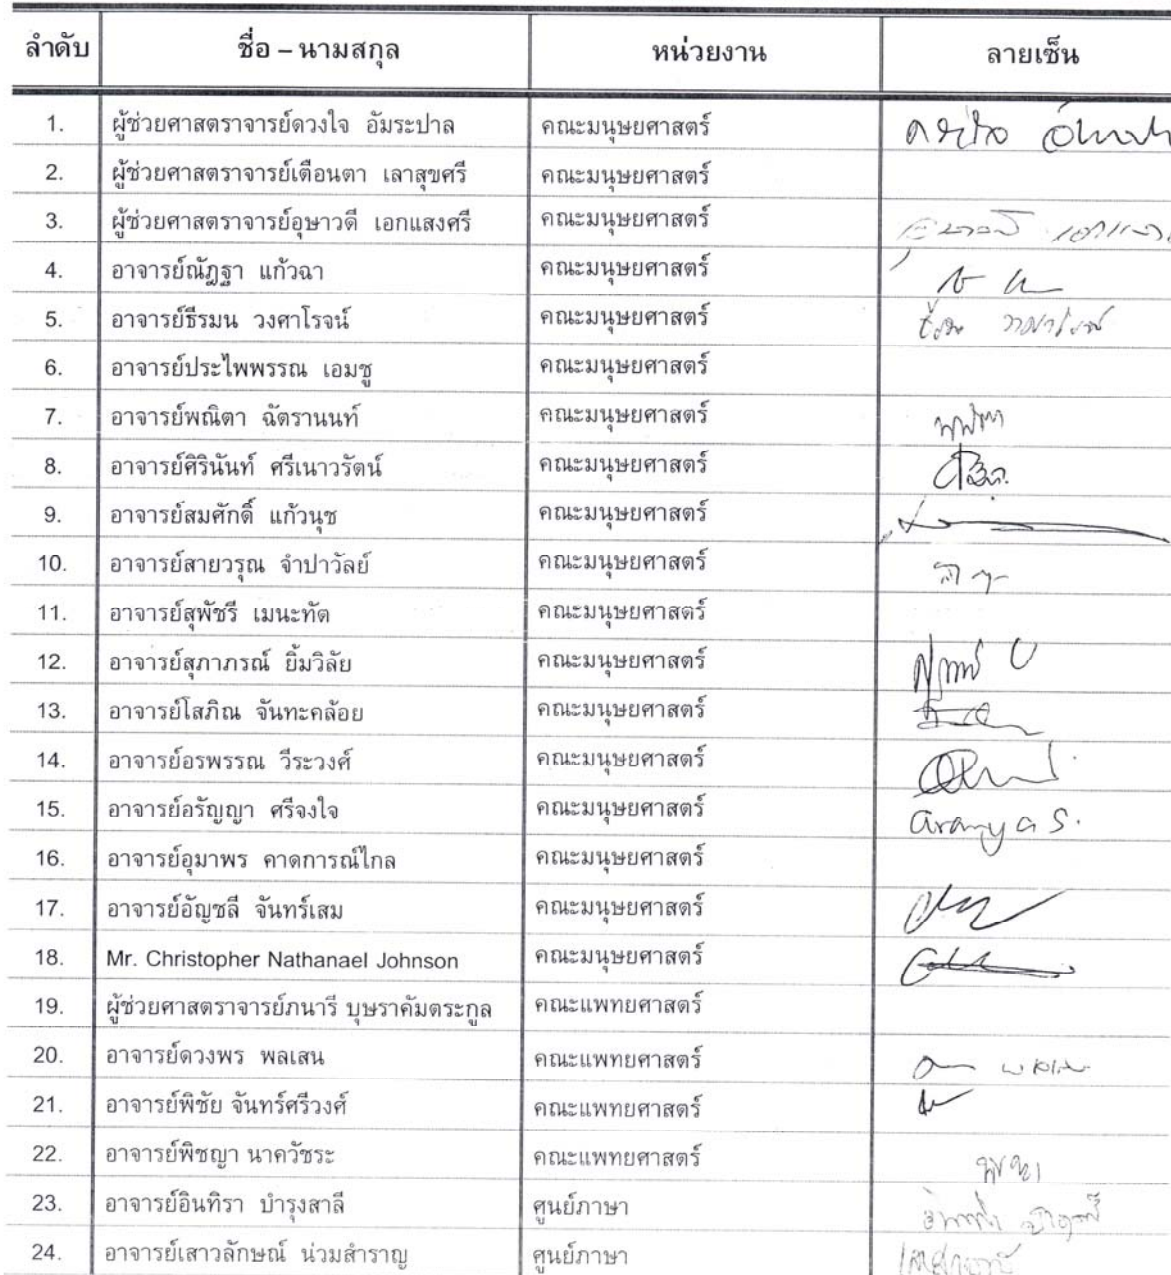 ลำดับ ชื่อ – นามสกุล หน่วยงาน ลายเซ็น
1. ผู้ช่วยศาสตราจารย์ดวงใจ อัมระปาล คณะมนุษยศาสตร์
2. ผู้ช่วยศาสตราจารย์เตือนตา เลาสุขศรี คณะมนุษยศาสตร์
3. ผู้ช่วยศาสตราจารย์อุษาวดี เอกแสงศรี คณะมนุษยศาสตร์
4. อาจารย์ณัฎฐา แก้วฉา คณะมนุษยศาสตร์
5. อาจารย์ธีรมน วงศาโรจน์ คณะมนุษยศาสตร์
6. อาจารย์ประไพพรรณ เอมชู คณะมนุษยศาสตร์
7. อาจารย์พณิตา ฉัตรานนท์ คณะมนุษยศาสตร์
8. อาจารย์ศิรินันท์ ศรีเนาวรัตน์ คณะมนุษยศาสตร์
9. อาจารย์สมศักดิ์ แก้วนุช คณะมนุษยศาสตร์
10. อาจารย์สายวรุณ จำปาวัลย์ คณะมนุษยศาสตร์
11. อาจารย์สุพัชรี เมนะทัต คณะมนุษยศาสตร์
12. อาจารย์สุภาภรณ์ ยิ้มวิลัย คณะมนุษยศาสตร์
13. อาจารย์โสภิณ จันทะคล้อย คณะมนุษยศาสตร์
14. อาจารย์อรพรรณ วีระวงศ์ คณะมนุษยศาสตร์
15. อาจารย์อรัญญา ศรีจงใจ คณะมนุษยศาสตร์ aranya S.
16. อาจารย์อุมาพร คาดการณ์ไกล คณะมนุษยศาสตร์
17. อาจารย์อัญชลี จันทร์เสม คณะมนุษยศาสตร์
18. Mr. Christopher Nathanael Johnson คณะมนุษยศาสตร์
19. ผู้ช่วยศาสตราจารย์ภนารี บุษราคัมตระกูล คณะแพทยศาสตร์
20. อาจารย์ดวงพร พลเสน คณะแพทยศาสตร์
21. อาจารย์พิชัย จันทร์ศรีวงศ์ คณะแพทยศาสตร์
22. อาจารย์พิชญา นาควัชระ คณะแพทยศาสตร์
23. อาจารย์อินทิรา บำรุงสาลี ศูนย์ภาษา
24. อาจารย์เสาวลักษณ์ น่วมสำราญ ศูนย์ภาษา